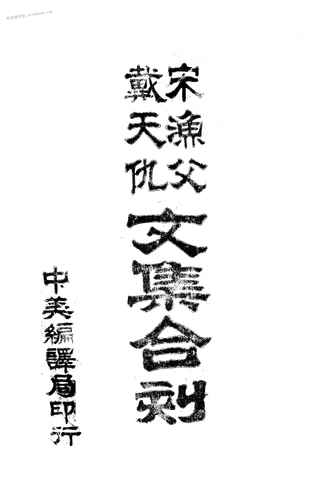 宋漁父
戴天仇
文集合刻
中美編譯局印行